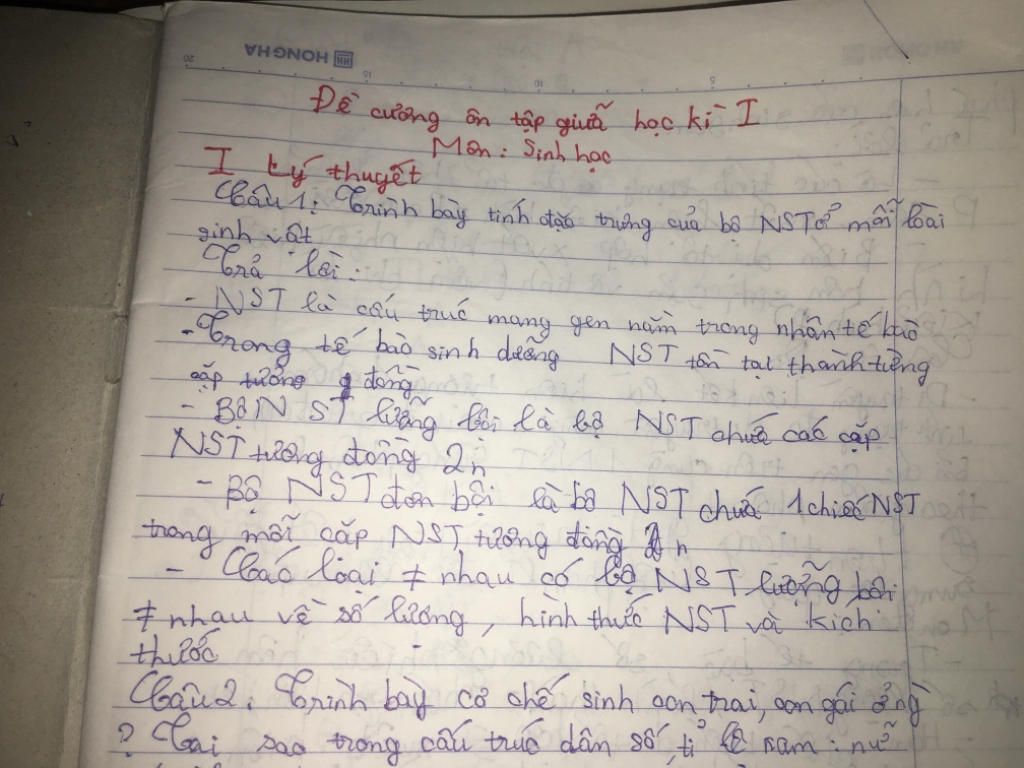 HONG HA
Đề cương ôn tập giữa học kì I
Môn: Sinh học
I Lý thuyết
Câu 1: Trình bày tính đặc trưng của bộ NST ở mỗi loài
sinh vật
Trả lời:
- NST là cấu trúc mang gen nằm trong nhân tế bào
- Trong tế bào sinh dưỡng NST tồn tại thành từng
cặp tương đồng
- Bộ NST lưỡng bội là bộ NST chứa các cặp
NST tương đồng 2n
- Bộ NST đơn bội là bộ NST chứa 1 chiếc NST
trong mỗi cặp NST tương đồng n
- Các loại ≠ nhau có bộ NST lưỡng bội
≠ nhau về số lượng, hình thức NST và kích
thước
Câu 2: Trình bày cơ chế sinh con trai, con gái ở ng
? Tại sao trong cấu trúc dân số, tỉ lệ nam : nữ